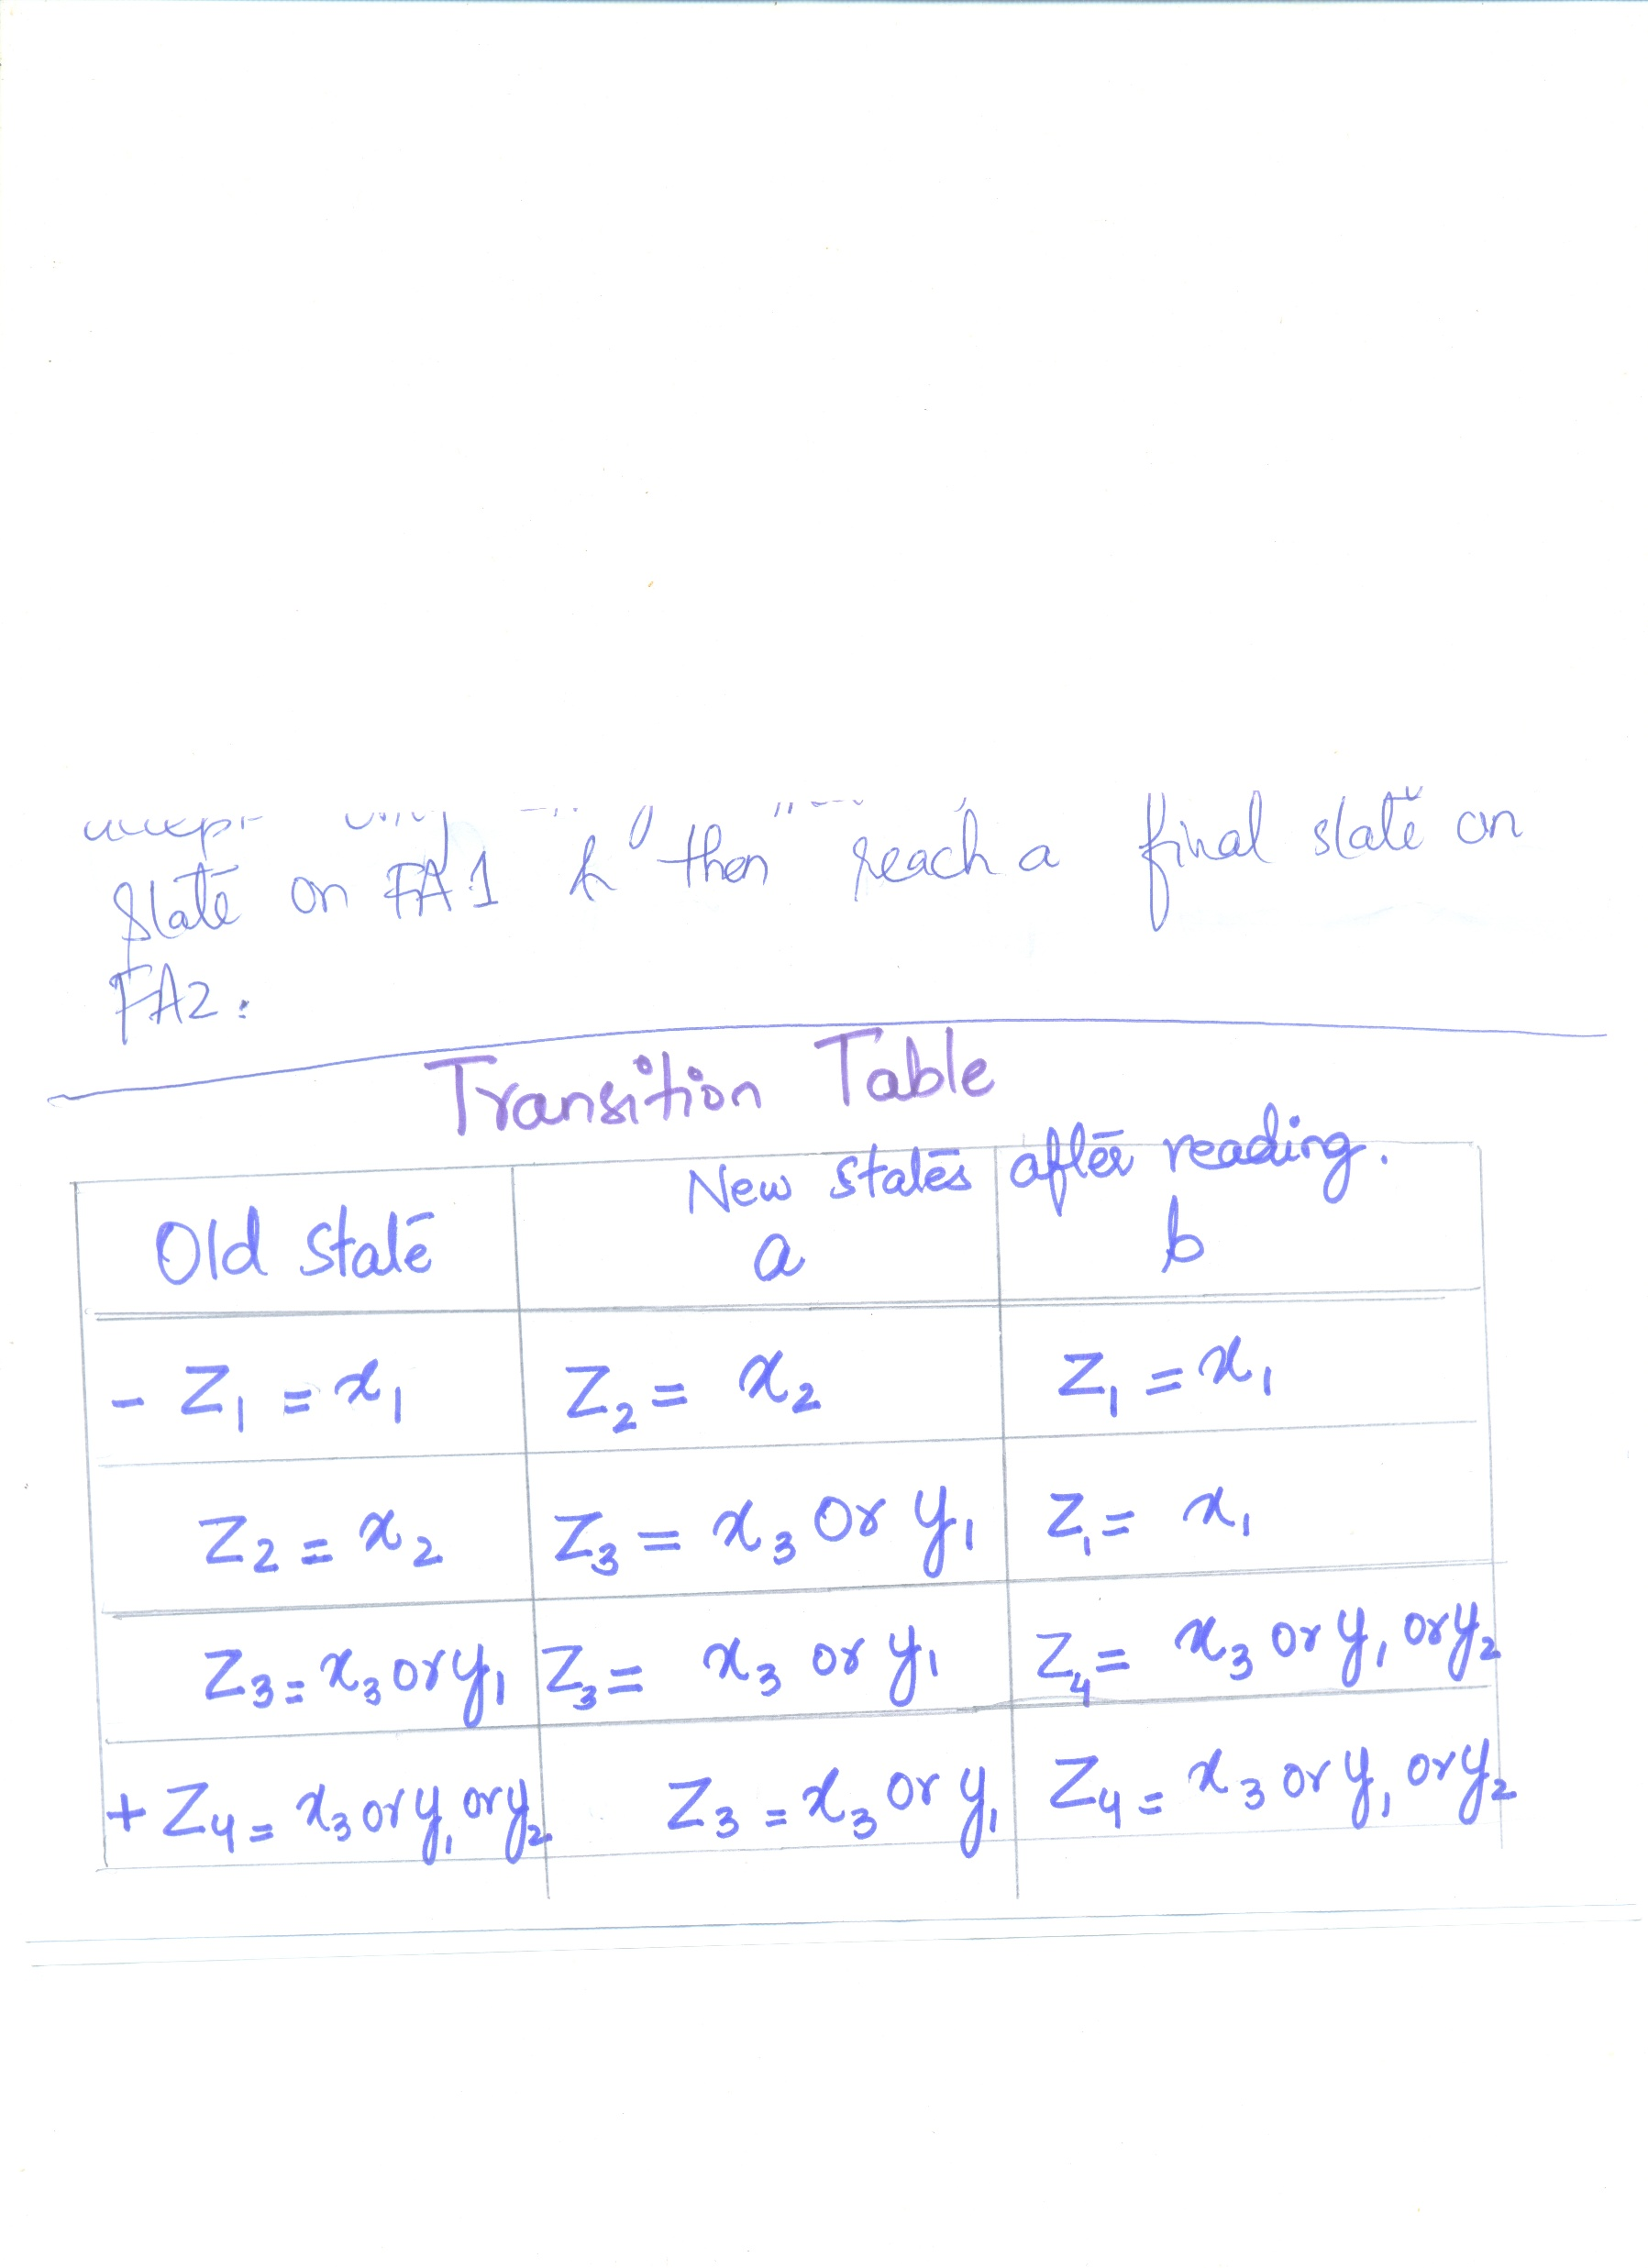 state on FA1 & then reach a final state on
FA2:
Transition Table
Old state | New states after reading.
a | b
- Z₁ = x₁ | Z₂ = x₂ | Z₁ = x₁
Z₂ = x₂ | Z₃ = x₃ or y₁ | Z₁ = x₁
Z₃ = x₃ or y₁ | Z₃ = x₃ or y₁ | Z₄ = x₃ or y₁ or y₂
+ Z₄ = x₃ or y₁ or y₂ | Z₃ = x₃ or y₁ | Z₄ = x₃ or y₁ or y₂